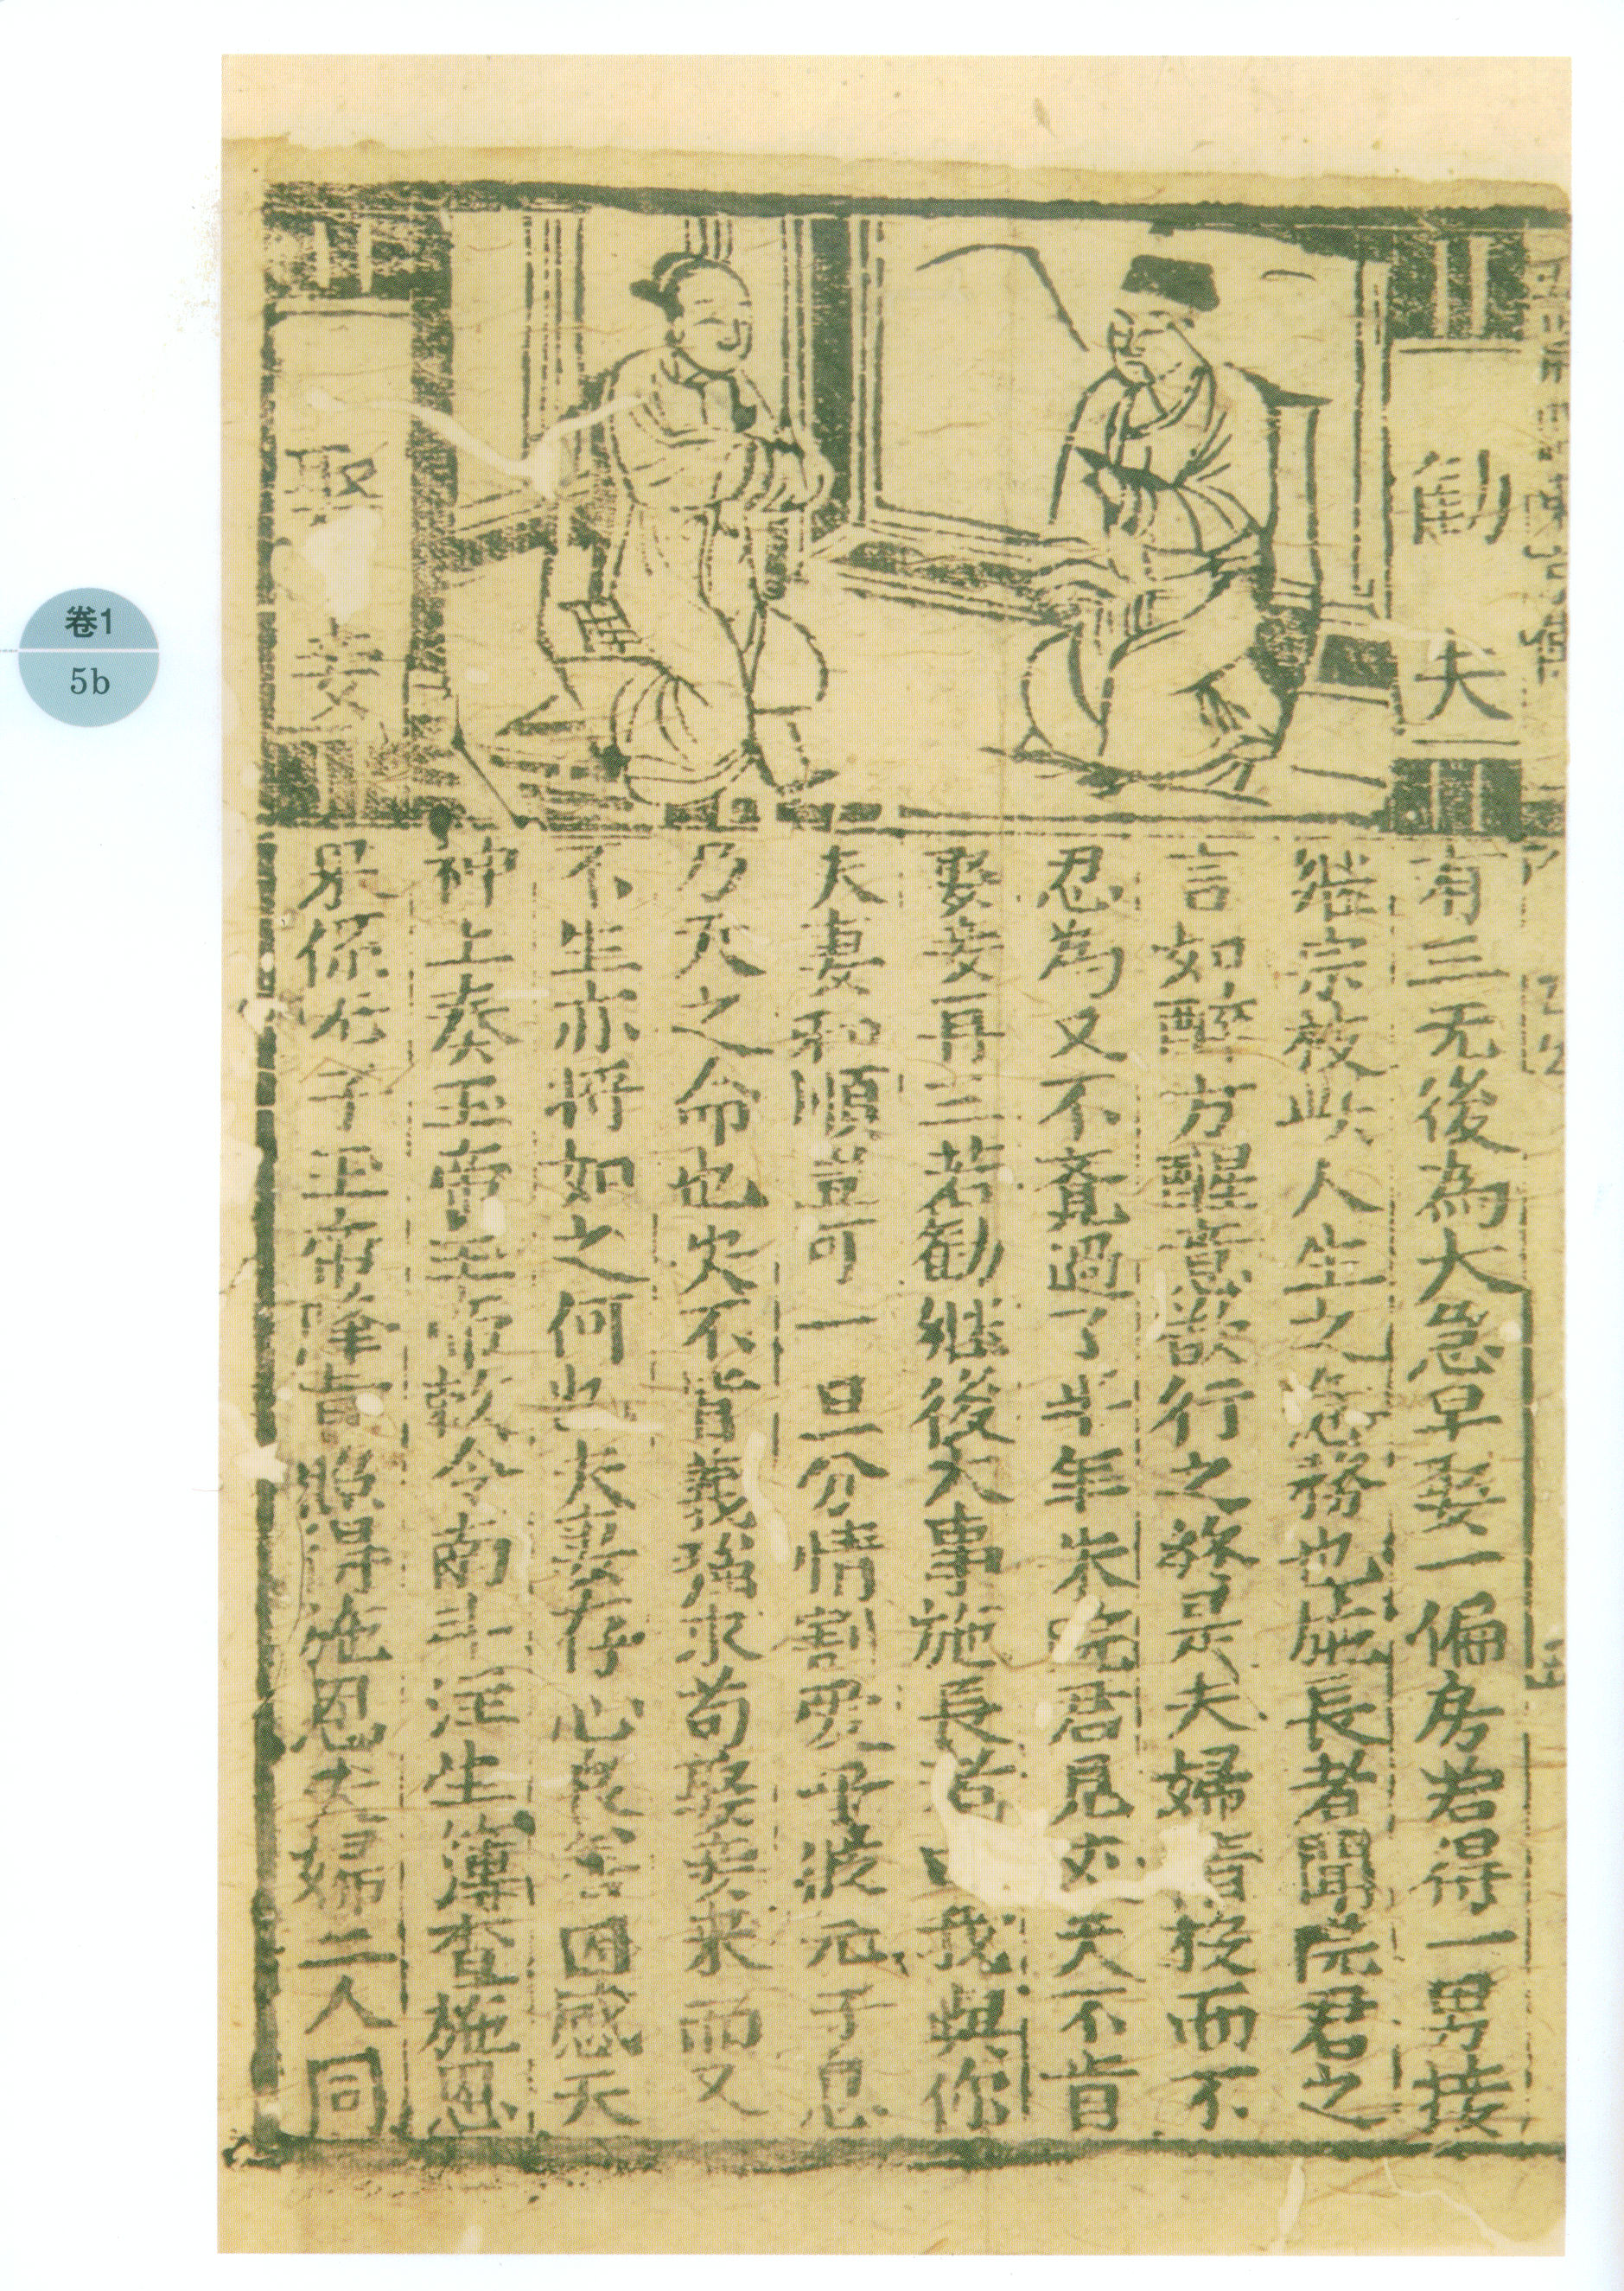 卷1
5b
勧夫
妾
有三无後為大急早娶一偏房若得一男接
継宗枝此人生之急務也施長者聞院君之
言如醉方醒意欲行之終是夫婦情投而不
忍為又不覚過了半年朱院君見丈夫不肯
娶妾再三苦勧継後大事施長者我與你
夫妻和順豈可一旦分情割愛乎无子息
乃天之命也不背義強求苟娶妾来而又
不生亦将如之何也夫妻存心良善因感天
神上奏玉帝玉帝敕令南斗注生簿查施恩
果係子玉帝降旨賜得施恩夫婦二人同